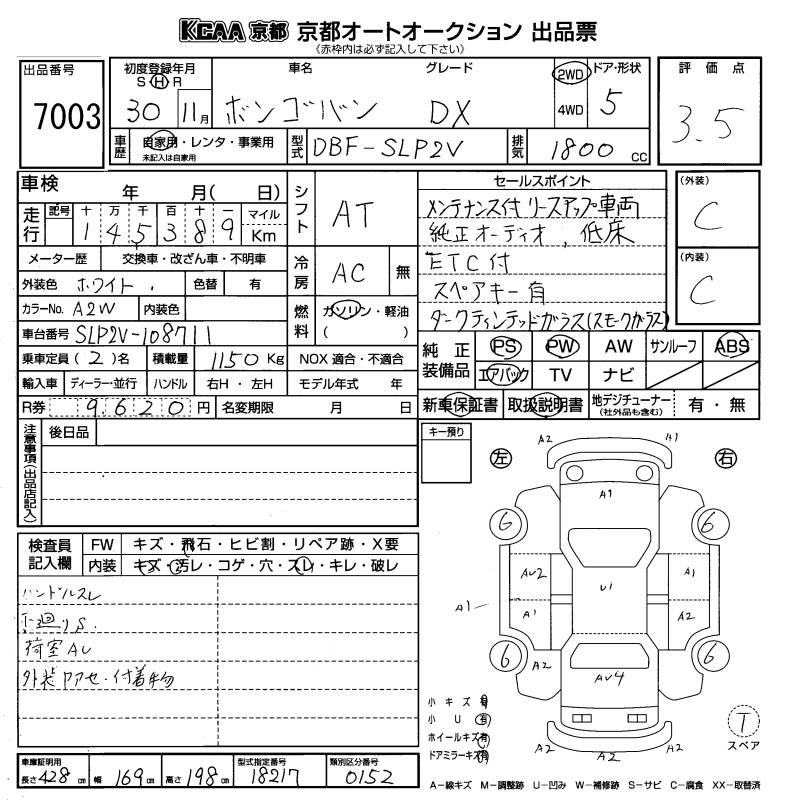 KCAA 京都 京都オートオークション 出品票
《赤枠内は必ず記入して下さい》
出品番号
7003
初度登録年月
S H R
30 11月
車名
グレード
ボンゴバン DX
2WD
4WD
ドア・形状
5
評価点
3.5
車歴
自家用・レンタ・事業用
未記入は自家用
型式
DBF-SLP2V
排気
1800 CC
車検 年 月( 日)
走行
記号 十 万 千 百 十 一 マイル
1 4 5 3 8 9 Km
シフト
AT
メーター歴 交換車・改ざん車・不明車
冷房
AC 無
外装色 ホワイト 色替 有
カラーNo. A2W 内装色
燃料
ガソリン・軽油
( )
車台番号 SLP2V-108711
乗車定員 (2)名 積載量 1150 Kg NOX 適合・不適合
輸入車 ディーラー・並行 ハンドル 右H・左H モデル年式 年
R券 9620円 名変期限 月 日
セールスポイント
メンテナンス付リースアップ車両
純正オーディオ、低床
ETC付
スペアキー有
ダークティンテッドガラス(スモークガラス)
(外装)
C
(内装)
C
純正装備品
PS PW AW サンルーフ ABS
エアバック TV ナビ
新車保証書 取扱説明書 地デジチューナー(社外品も含む) 有・無
注意事項(出品店記入)
後日品
キー預り
左 右
A2 A1
A1
6 6
AU2 A1
U1
A1 A1 A2
6 6
A2 AU4 A2
A2 A2
小キズ 有
小U 有
ホイールキズ 有
ドアミラーキズ 有
T
スペア
検査員記入欄
FW キズ・飛石・ヒビ割・リペア跡・X要
内装 キズ・汚レ・コゲ・穴・スレ・キレ・破レ
ハンドルスレ
下廻りS.
荷室AU
外装アセ・付着物
車庫証明用
長さ 428 cm 幅 169 cm 高さ 198 cm
型式指定番号
18217
類別区分番号
0152
A-線キズ M-調整跡 U-凹み W-補修跡 S-サビ C-腐食 XX-取替済